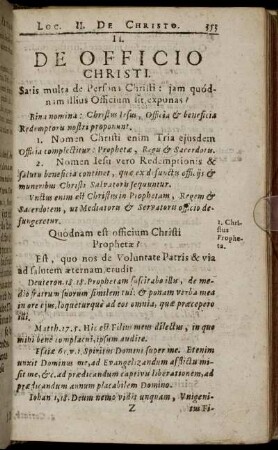 Loc. II. De Christo. 353
II.
DE OFFICIO
CHRISTI.
Satis multa de Persona Christi: jam quód-
nam illius Officium sit exponas?
Bina nomina: Christus Iesus, Officia & beneficia
Redemptoris nostri proponunt.
1. Nomen Christi enim Tria ejusdem
Officia complectitur: Prophetæ, Regis & Sacerdotis.
2. Nomen Iesu vero Redemptionis &
salutis beneficia continet, quæ ex defunctis officijs &
muneribus Christi Salvatoris sequuntur.
Vnctus enim est Christus in Prophetam, Regem &
Sacerdotem, ut Mediatoris & Servatoris officio de-
fungeretur.
Quodnam est officium Christi
Prophetæ?
1. Chri-
stus
Prophe-
ta.
Est, quo nos de Voluntate Patris & via
ad salutem æternam erudit
Deuteron. 18. 18. Prophetam suscitabo illis, de me-
dio fratrum suorum similem tui: & ponam verba mea
in ore ejus, loqueturque ad eos omnia, quæ præcepero
illi.
Matth. 17. 5. Hic est Filius meus dilectus, in quo
mihi bene complacui, ipsum audite.
Esaiæ 61. v. 1. Spiritus Domini super me. Etenim
unxit Dominus me, ad Evangelizandum afflictis mi-
sit me, &c. ad prædicandum captivis liberationem, ad
prædicandum annum placabilem Domino.
Iohan 1, 18. Deum nemo vidit unquam, Unigeni-
Z tus Fi-